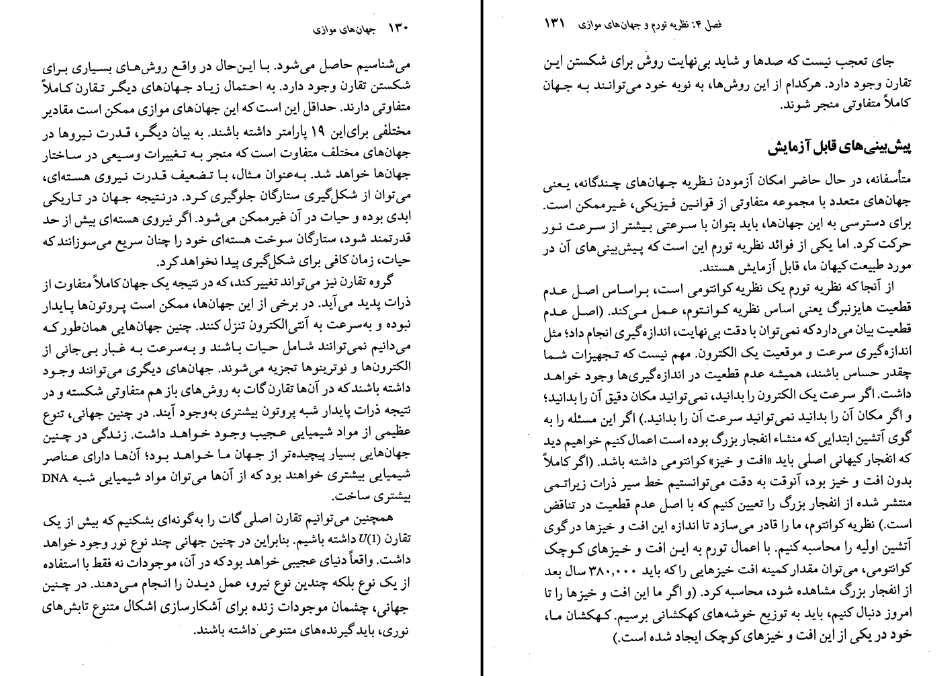 ۱۳۰ جهان‌های موازی
می‌شناسیم حاصل می‌شود. با این‌حال در واقع روش‌های بسیاری برای
شکستن تقارن وجود دارد. به احتمال زیاد جهان‌های دیگر تقارن کاملاً
متفاوتی دارند. حداقل این است که این جهان‌های موازی ممکن است مقادیر
مختلفی برای‌این ۱۹ پارامتر داشته باشند. به بیان دیگر، قدرت نیروها در
جهان‌های مختلف متفاوت است که منجر به تغییرات وسیعی در ساختار
جهان‌ها خواهد شد. به‌عنوان مثال، با تضعیف قدرت نیروی هسته‌ای،
می‌توان از شکل‌گیری ستارگان جلوگیری کرد. درنتیجه جهان در تاریکی
ابدی بوده و حیات در آن غیرممکن می‌شود. اگر نیروی هسته‌ای بیش از حد
قدرتمند شود، ستارگان سوخت هسته‌ای خود را چنان سریع می‌سوزانند که
حیات، زمان کافی برای شکل‌گیری پیدا نخواهد کرد.
گروه تقارن نیز می‌تواند تغییر کند، که در نتیجه یک جهان کاملاً متفاوت از
ذرات پدید می‌آید. در برخی از این جهان‌ها، ممکن است پروتون‌ها پایدار
نبوده و به‌سرعت به آنتی‌الکترون تنزل کنند. چنین جهان‌هایی همان‌طور که
می‌دانیم نمی‌توانند شامل حیات باشند و به‌سرعت به غبار بی‌جانی از
الکترون‌ها و نوترینوها تجزیه می‌شوند. جهان‌های دیگری می‌توانند وجود
داشته باشند که در آن‌ها تقارن گات به روش‌های باز هم متفاوتی شکسته و در
نتیجه ذرات پایدار شبه پروتون بیشتری به‌وجود آیند. در چنین جهانی، تنوع
عظیمی از مواد شیمیایی عجیب وجود خواهد داشت. زندگی در چنین
جهان‌هایی بسیار پیچیده‌تر از جهان ما خواهد بود؛ آن‌ها دارای عناصر
شیمیایی بیشتری خواهند بود که از آن‌ها می‌توان مواد شیمیایی شبه DNA
بیشتری ساخت.
همچنین می‌توانیم تقارن اصلی گات را به‌گونه‌ای بشکنیم که بیش از یک
تقارن U(1) داشته باشیم. بنابراین در چنین جهانی چند نوع نور وجود خواهد
داشت. واقعاً دنیای عجیبی خواهد بود که در آن، موجودات نه فقط با استفاده
از یک نوع بلکه چندین نوع نیرو، عمل دیدن را انجام می‌دهند. در چنین
جهانی، چشمان موجودات زنده برای آشکارسازی اشکال متنوع تابش‌های
نوری، باید گیرنده‌های متنوعی داشته باشند.
فصل ۴: نظریه تورم و جهان‌های موازی ۱۳۱
جای تعجب نیست که صدها و شاید بی‌نهایت روش برای شکستن این
تقارن وجود دارد. هرکدام از این روش‌ها، به نوبه خود می‌توانند به جهان
کاملاً متفاوتی منجر شوند.
پیش‌بینی‌های قابل آزمایش
متأسفانه، در حال حاضر امکان آزمودن نظریه جهان‌های چندگانه، یعنی
جهان‌های متعدد با مجموعه متفاوتی از قوانین فیزیکی، غیرممکن است.
برای دسترسی به این جهان‌ها، باید بتوان با سرعتی بیشتر از سرعت نور
حرکت کرد. اما یکی از فوائد نظریه تورم این است که پیش‌بینی‌های آن در
مورد طبیعت کیهان ما، قابل آزمایش هستند.
از آنجا که نظریه تورم یک نظریه کوانتومی است، براساس اصل عدم
قطعیت هایزنبرگ یعنی اساس نظریه کوانتوم، عمل می‌کند. (اصل عدم
قطعیت بیان می‌دارد که نمی‌توان با دقت بی‌نهایت، اندازه‌گیری انجام داد؛ مثل
اندازه‌گیری سرعت و موقعیت یک الکترون. مهم نیست که تجهیزات شما
چقدر حساس باشند، همیشه عدم قطعیت در اندازه‌گیری‌ها وجود خواهد
داشت. اگر سرعت یک الکترون را بدانید، نمی‌توانید مکان دقیق آن را بدانید؛
و اگر مکان آن را بدانید نمی‌توانید سرعت آن را بدانید.) اگر این مسئله را به
گوی آتشین ابتدایی که منشاء انفجار بزرگ بوده است اعمال کنیم خواهیم دید
که انفجار کیهانی اصلی باید «افت و خیز» کوانتومی داشته باشد. (اگر کاملاً
بدون افت و خیز بود، آنوقت به دقت می‌توانستیم خط سیر ذرات زیراتمی
منتشر شده از انفجار بزرگ را تعیین کنیم که با اصل عدم قطعیت در تناقض
است.) نظریه کوانتوم، ما را قادر می‌سازد تا اندازه این افت و خیزها در گوی
آتشین اولیه را محاسبه کنیم. با اعمال تورم به این افت و خیزهای کوچک
کوانتومی، می‌توان مقدار کمینه افت خیزهایی را که باید ۳۸۰,۰۰۰ سال بعد
از انفجار بزرگ مشاهده شود، محاسبه کرد. (و اگر ما این افت و خیزها را تا
امروز دنبال کنیم، باید به توزیع خوشه‌های کهکشانی برسیم. کهکشان ما،
خود در یکی از این افت و خیزهای کوچک ایجاد شده است.)